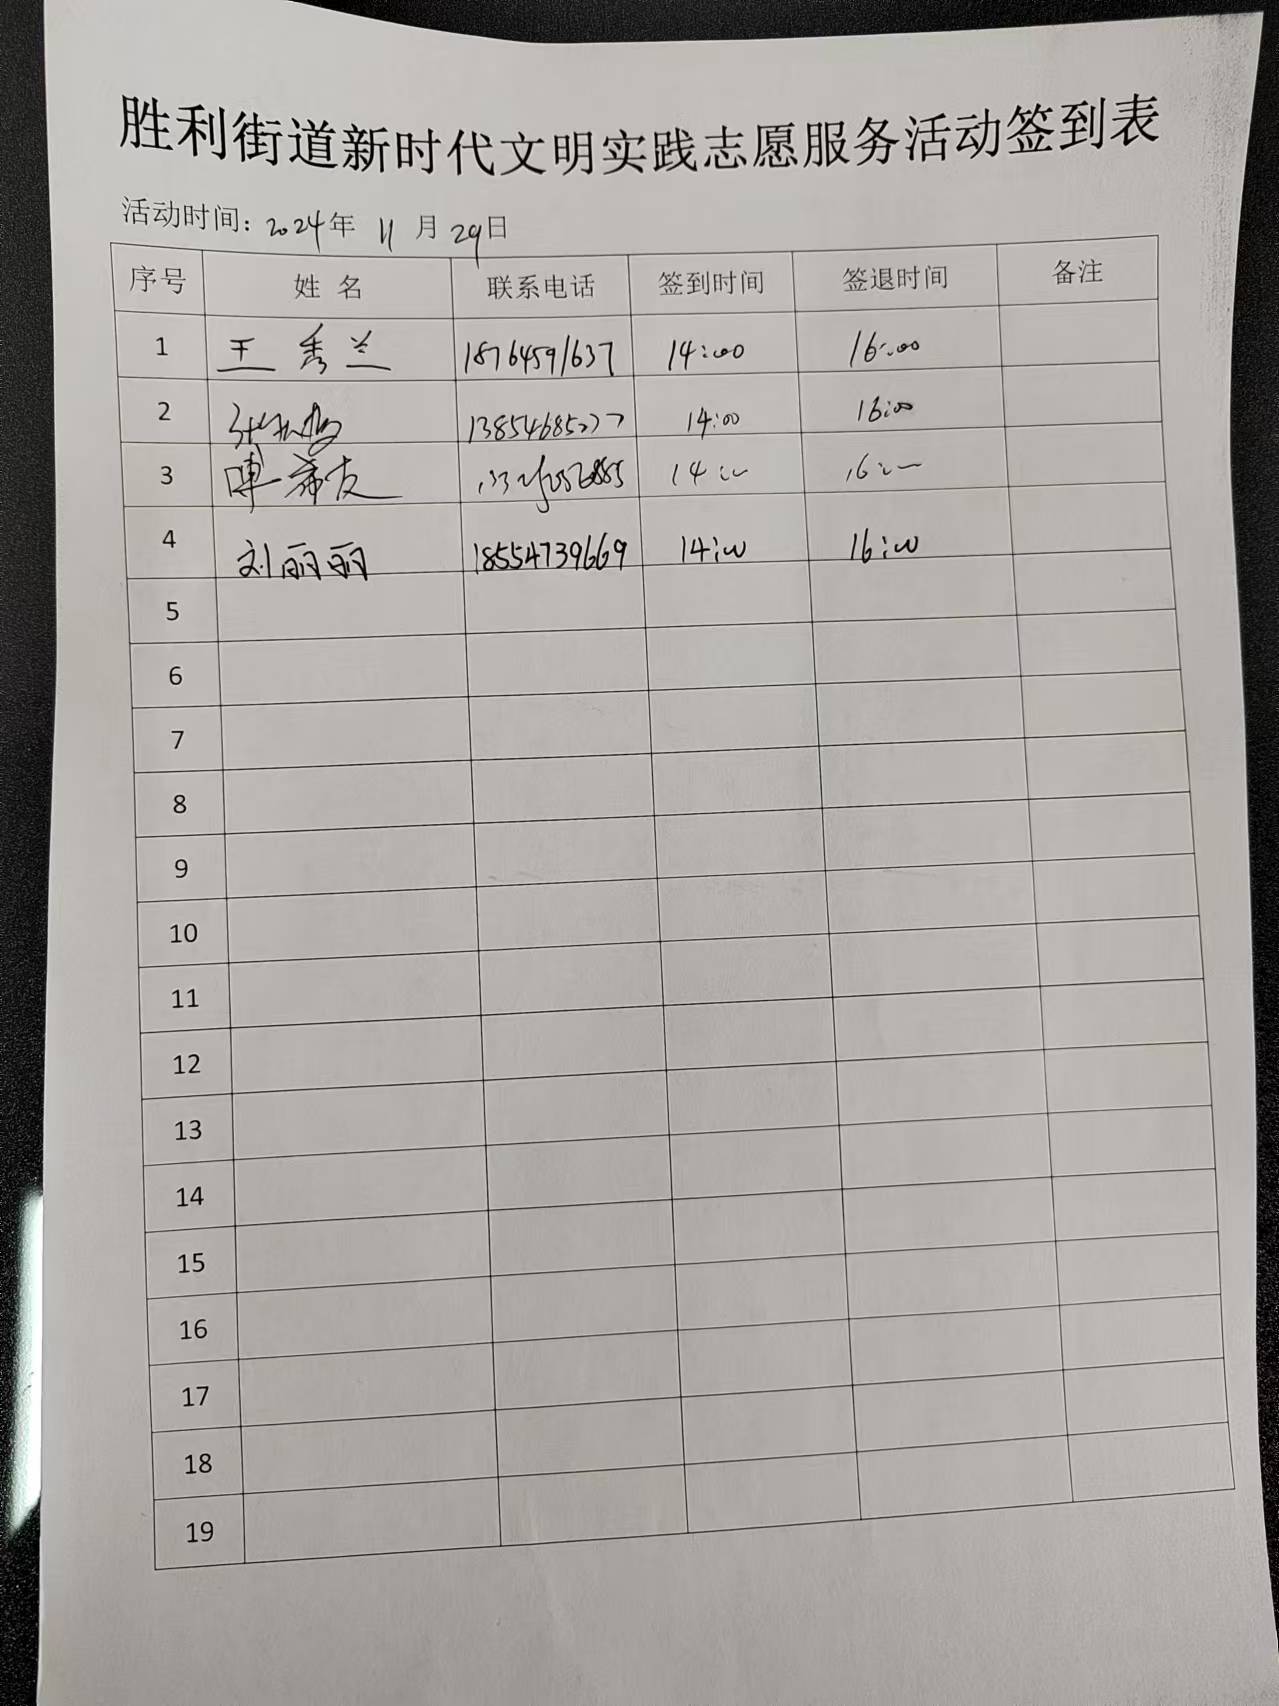 胜利街道新时代文明实践志愿服务活动签到表
活动时间：2024年 11月 29日
序号 姓 名 联系电话 签到时间 签退时间 备注
1 王秀兰 18764591637 14:00 16:00
2 13854685277 14:00 16:00
3 14:00 16:00
4 刘丽丽 18554739669 14:00 16:00
5
6
7
8
9
10
11
12
13
14
15
16
17
18
19